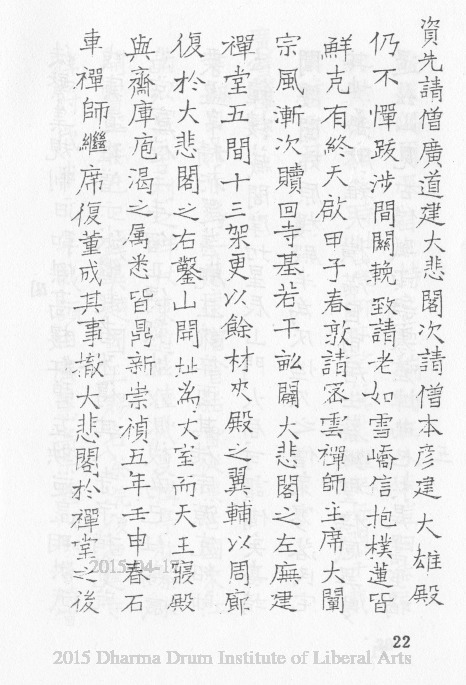 資先請僧廣道建大悲閣次請僧本彦建大雄殿
仍不憚跋涉間關輓致請老如雪嶠信抱樸蓮皆
鮮克有終天啟甲子春敦請密雲禪師主席大闡
宗風漸次贖回寺基若干畝闢大悲閣之左廡建
禪堂五間十三架更以餘材夾殿之翼輔以周廊
復於大悲閣之右鑿山開址為丈室而天王寢殿
與齋庫庖湢之属悉皆鼎新崇禎五年壬申春石
車禪師繼席復董成其事撤大悲閣於禪堂之後
2015-04-17
22
2015 Dharma Drum Institute of Liberal Arts